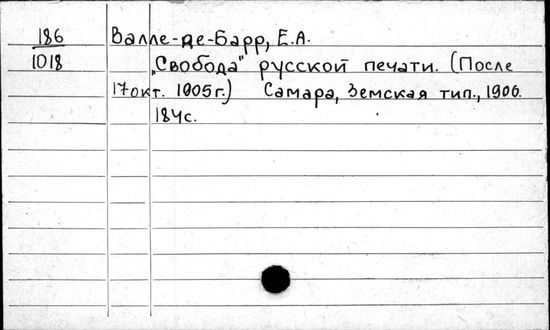 186
1018
Валле-де-Барр, Е.А.
„Свобода" русской печати. (После
17 окт. 1905 г.) Самара, Земская тип., 1906.
184с.